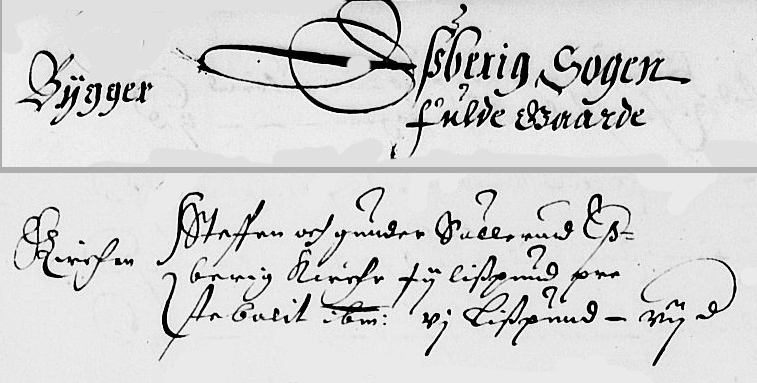 Bÿgger Eßberig Sogen
fulde Gaarde
Kirchen Steffen och gunder Sallerud Eß=
berig Kirche iij lißpund pre
stebolit ibm: vj Lißpund – viij d